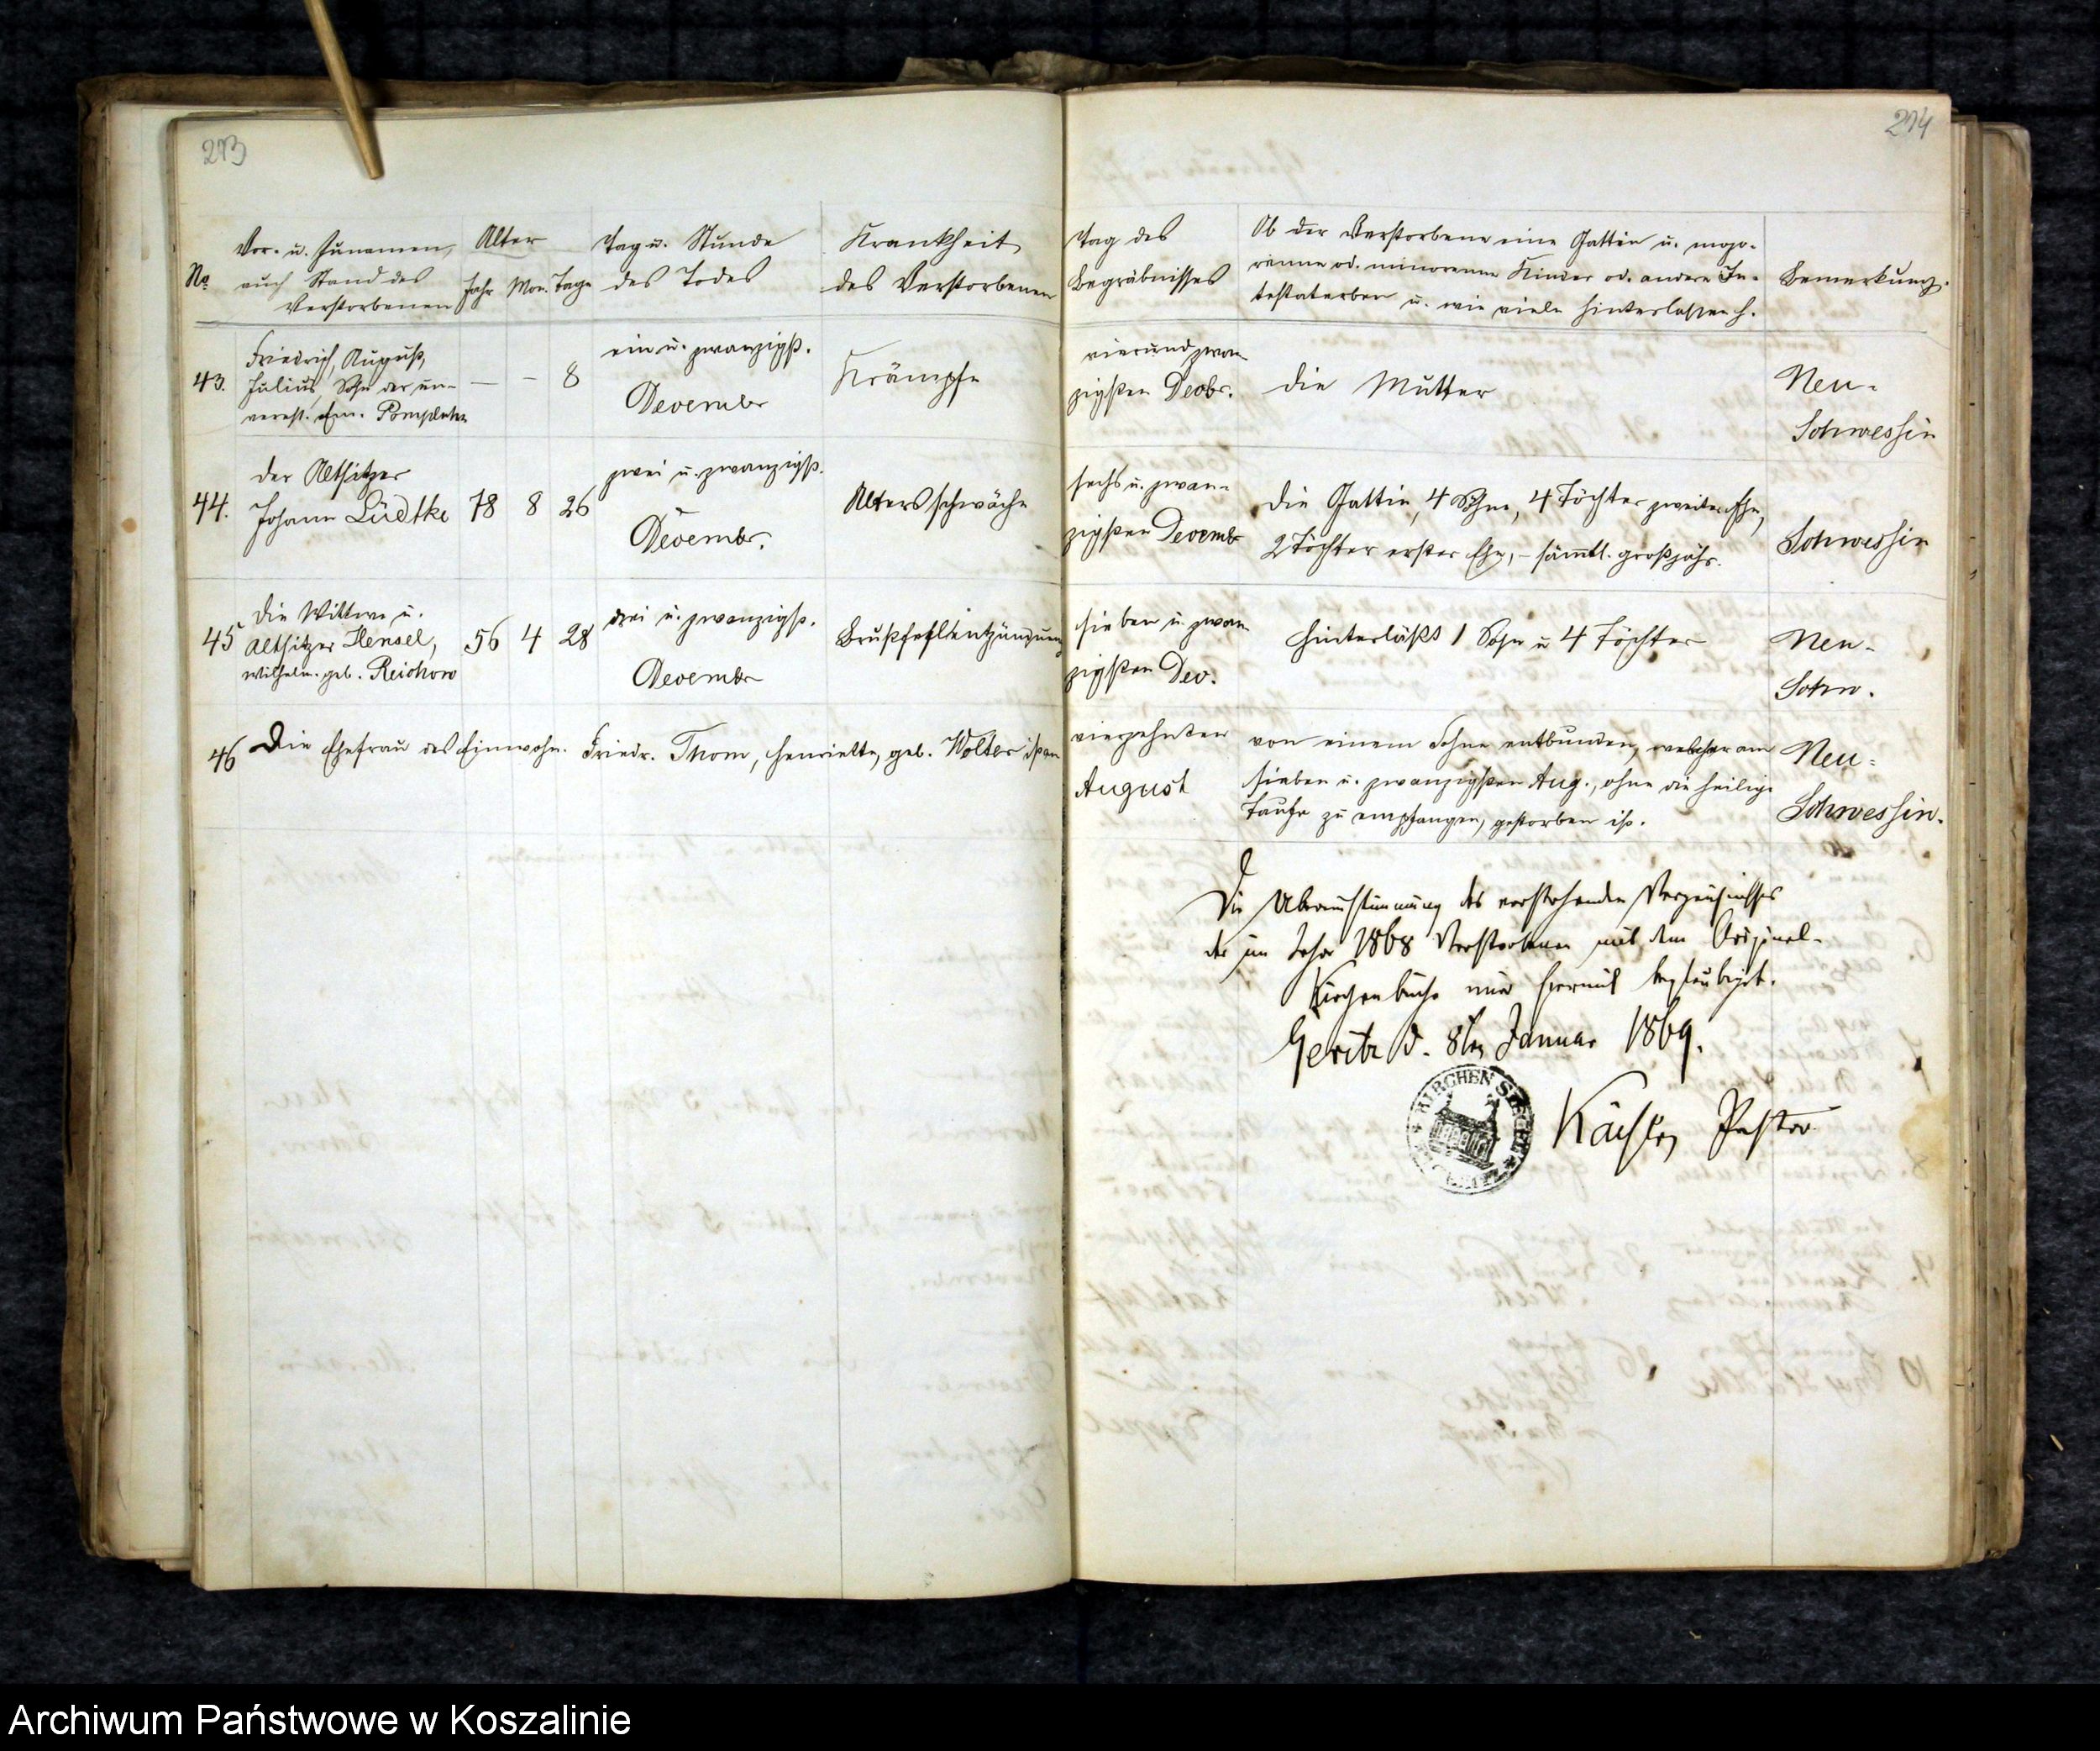 293
294
No
Vor- u. Zunamen,
auch Stand des
Verstorbenen
Alter
Jahr Mon. Tage
Tag u. Stunde
des Todes
Krankheit
des Verstorbenen
Tag des
Begräbnisses
Ob der Verstorbene eine Gattin u. majo-
renne od. minorenne Kinder od. andere In-
testaterben u. wie viele hinterlassen h.
Bemerkung.
43.
Friedrich, August,
Julius, Sohn der un-
vereh.
— – 8
ein u. zwanzigst.
Decembr
Krämpfe
vierundzwan-
zigsten Decbr.
die Mutter
Neu-
Schwessin
44.
der Altsitzer
Johann Lüdtke
78 8 26
zwei u. zwanzigst.
Decembr.
Altersschwäche
sechs u. zwan-
zigsten Decembr
die Gattin, 4 Söhne, 4 Töchter zweiter Ehe,
2 Töchter erster Ehe, – sämtl. großjähr.
Schwessin
45
die Wittwe u.
Altsitzer Hensel,
Wilhelm. geb. Reichow
56 4 28
drei u. zwanzigst.
Decembr
Brustfellentzündung
sieben u. zwan-
zigsten Dec.
hinterläßt 1 Sohn u 4 Töchter
Neu-
Schw.
46
Die Ehefrau des Einwohn. Friedr. Thom, Henriette, geb. Wolter ist am
vierzehnten
August
von einem Sohne entbunden, welcher am
sieben u. zwanzigsten Aug., ohne die heilige
Taufe zu empfangen, gestorben ist.
Neu-
Schwessin.
Die Übereinstimmung des vorstehenden Verzeichnisses
der im Jahr 1868 Verstorbenen mit dem Original-
Kirchenbuche wird hiermit beglaubigt.
Geritz d. 8ten Januar 1869.
KIRCHEN SIEGEL
Pastor
Archiwum Państwowe w Koszalinie